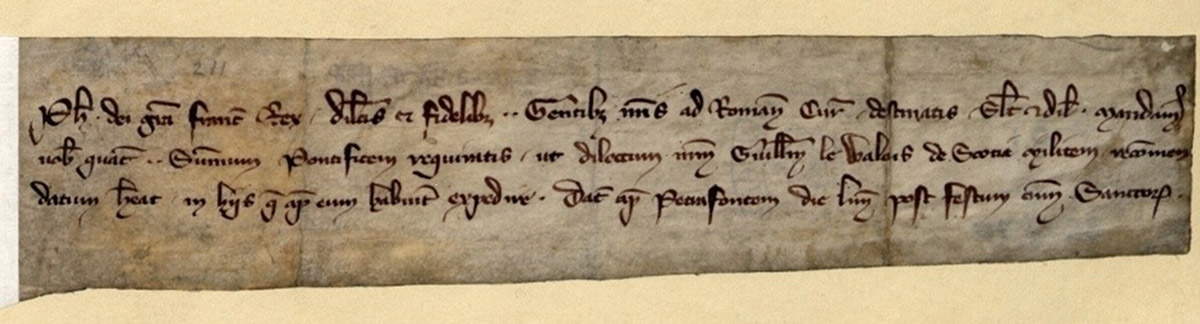 211
Ph. dei gra franc Rex dilcis et fidelib; .. Gentib; nris ad Roman Cur destinatis Slt & dil. mandam
uob quat .. Summum Pontificem requiratis ut dilectum nrm Guillm le Walois de Scotia militem recomen
datum heat in hijs q ap eum habuit expedire . Dat ap Petrafontem die lun post festum omn Sanctor .